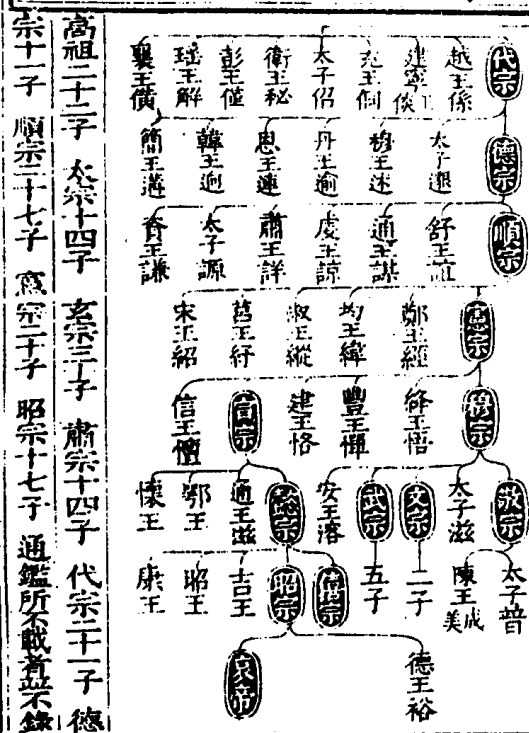 代宗 越王係 建寧王倓 兗王僴 太子佋 衞王秘 彭王僅 瑶王解 襄王僙
德宗 太子邈 穆王述 丹王逾 恩王連 韓王迥 簡王遘
順宗 舒王誼 通王諶 虔王諒 肅王詳 太子謜 資王謙
憲宗 鄭王經 均王緯 溆王縱 莒王紓 宋王紹
穆宗 絳王悟 豐王惲 建王恪 宣宗 信王憻
敬宗 太子滋 文宗 武宗 安王溶 懿宗 通王滋 鄆王 懷王
太子普 陳王成美 二子 五子 僖宗 昭宗 吉王 昭王 康王
德王裕 哀帝
高祖二十二子 太宗十四子 玄宗三十子 肅宗十四子 代宗二十一子 德
宗十一子 順宗二十七子 憲宗二十子 昭宗十七子 通鑑所不載者並不錄